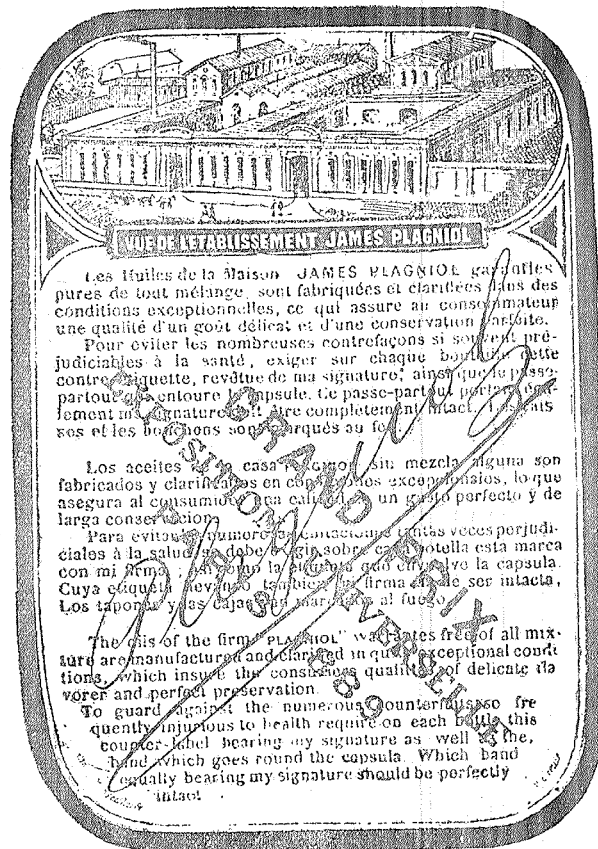 VUE DE L'ETABLISSEMENT JAMES PLAGNIOL
Les Huiles de la Maison JAMES PLAGNIOL garanties
pures de tout mélange, sont fabriquées et clarifiées dans des
conditions exceptionnelles, ce qui assure au consommateur
une qualité d'un goût délicat et d'une conservation parfaite.
Pour éviter les nombreuses contrefaçons si souvent pré-
judiciables à la santé, exiger sur chaque bouteille cette
contre-étiquette, revêtue de ma signature, ainsi que le passe-
partout qui entoure la capsule. Ce passe-partout portant éga-
lement ma signature doit être complètement intact. Les cais
ses et les bouchons sont marqués au feu
Los aceites de la casa PLAGNIOL sin mezcla alguna son
fabricados y clarificados en condiciones excepcionales, lo que
asegura al consumidor una calidad de un gusto perfecto y de
larga conservacion.
Para evitar numerosas tantas veces perjudi-
ciales à la salud, se debe sobre cada botella esta marca
con mi firma, asi como la que envuelve la capsula.
Cuya etiqueta llevando tambien mi firma ha de ser intacta,
Los tapones y las cajas van marcados al fuego
The oils of the firm "PLAGNIOL" warrantes free of all mix-
ture are manufactured and clarified in quite exceptional condi
tions, which insure the consumers qualities of delicate fla
vorer and perfect preservation.
To guard against the numerous so fre
quently injurious to health require on each bottle this
counter-label bearing my signature as well as the,
band which goes round the capsula. Which band
equally bearing my signature should be perfectly
intact
GRAND PRIX
EXPOSITION UNIVERSELLE
PARIS 1889